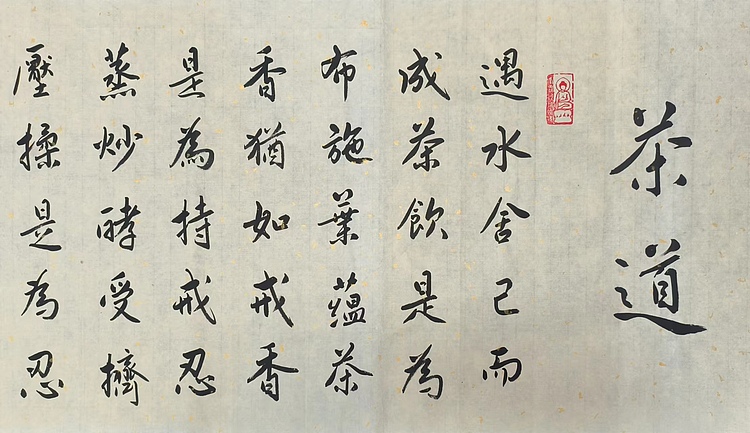 茶道
遇水舍己而
成茶飲是為
布施葉蘊茶
香猶如戒香
是為持戒忍
蒸炒酵受擠
壓揉是為忍